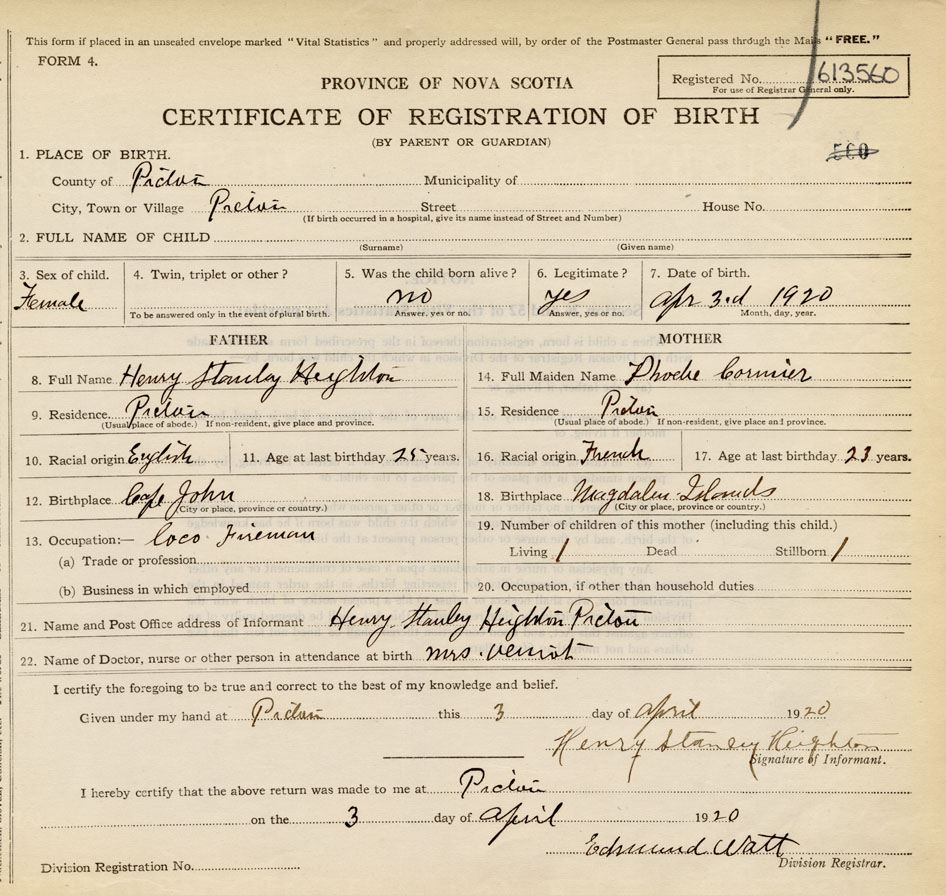 This form if placed in an unsealed envelope marked "Vital Statistics" and properly addressed will, by order of the Postmaster General pass through the Mails "FREE."
FORM 4.
PROVINCE OF NOVA SCOTIA
Registered No. 613560
For use of Registrar General only.
CERTIFICATE OF REGISTRATION OF BIRTH
(BY PARENT OR GUARDIAN)
1. PLACE OF BIRTH.
County of Pictou Municipality of
City, Town or Village Pictou Street House No.
(If birth occurred in a hospital, give its name instead of Street and Number)
2. FULL NAME OF CHILD
(Surname) (Given name)
3. Sex of child. 4. Twin, triplet or other? 5. Was the child born alive? 6. Legitimate? 7. Date of birth.
Female no yes Apr 3.d 1920
To be answered only in the event of plural birth. Answer, yes or no. Answer, yes or no. Month, day, year.
FATHER MOTHER
8. Full Name Henry Stanley Heighton 14. Full Maiden Name Phoebe Cormier
9. Residence. Pictou 15. Residence Pictou
(Usual place of abode.) If non-resident, give place and province. (Usual place of abode.) If non-resident, give place and province.
10. Racial origin English 11. Age at last birthday 25 years. 16. Racial origin French 17. Age at last birthday 23 years.
12. Birthplace Cape John 18. Birthplace Magdalen Islands
(City or place, province or country.) (City or place, province or country.)
13. Occupation:— Loco Fireman 19. Number of children of this mother (including this child.)
(a) Trade or profession Living 1 Dead Stillborn 1
(b) Business in which employed 20. Occupation, if other than household duties
21. Name and Post Office address of Informant Henry Stanley Heighton Pictou
22. Name of Doctor, nurse or other person in attendance at birth Mrs.
I certify the foregoing to be true and correct to the best of my knowledge and belief.
Given under my hand at Pictou this 3 day of April 1920
Henry Stanley Heighton
Signature of Informant.
I hereby certify that the above return was made to me at Pictou
on the 3 day of April 1920
Edmund Watt
Division Registration No. Division Registrar.